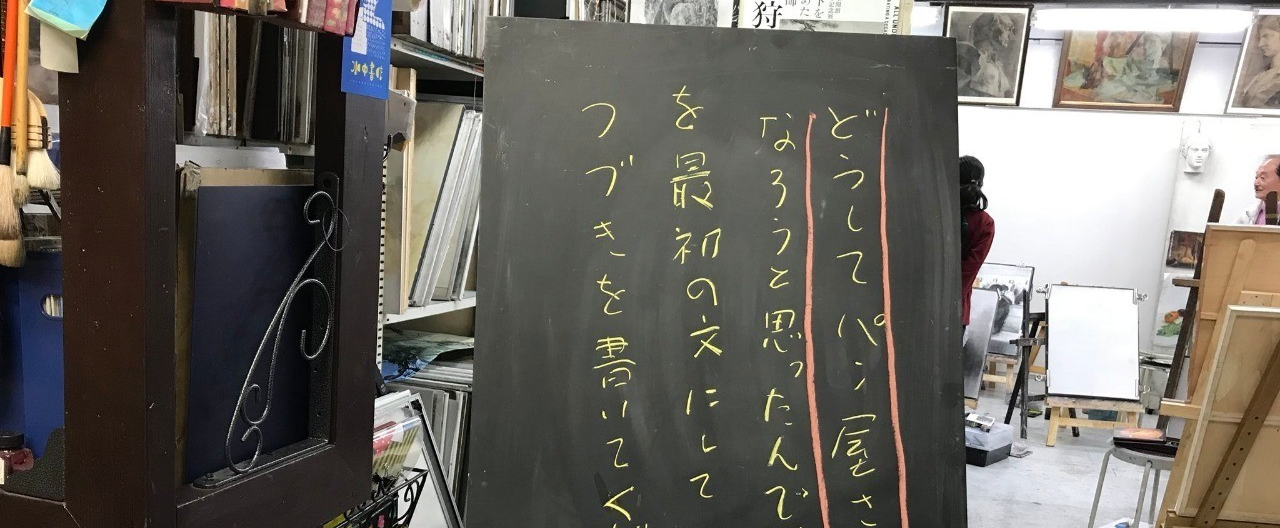 どうしてパン屋さ
なろうと思ったんで
を最初の文にして
つづきを書いてく
狩